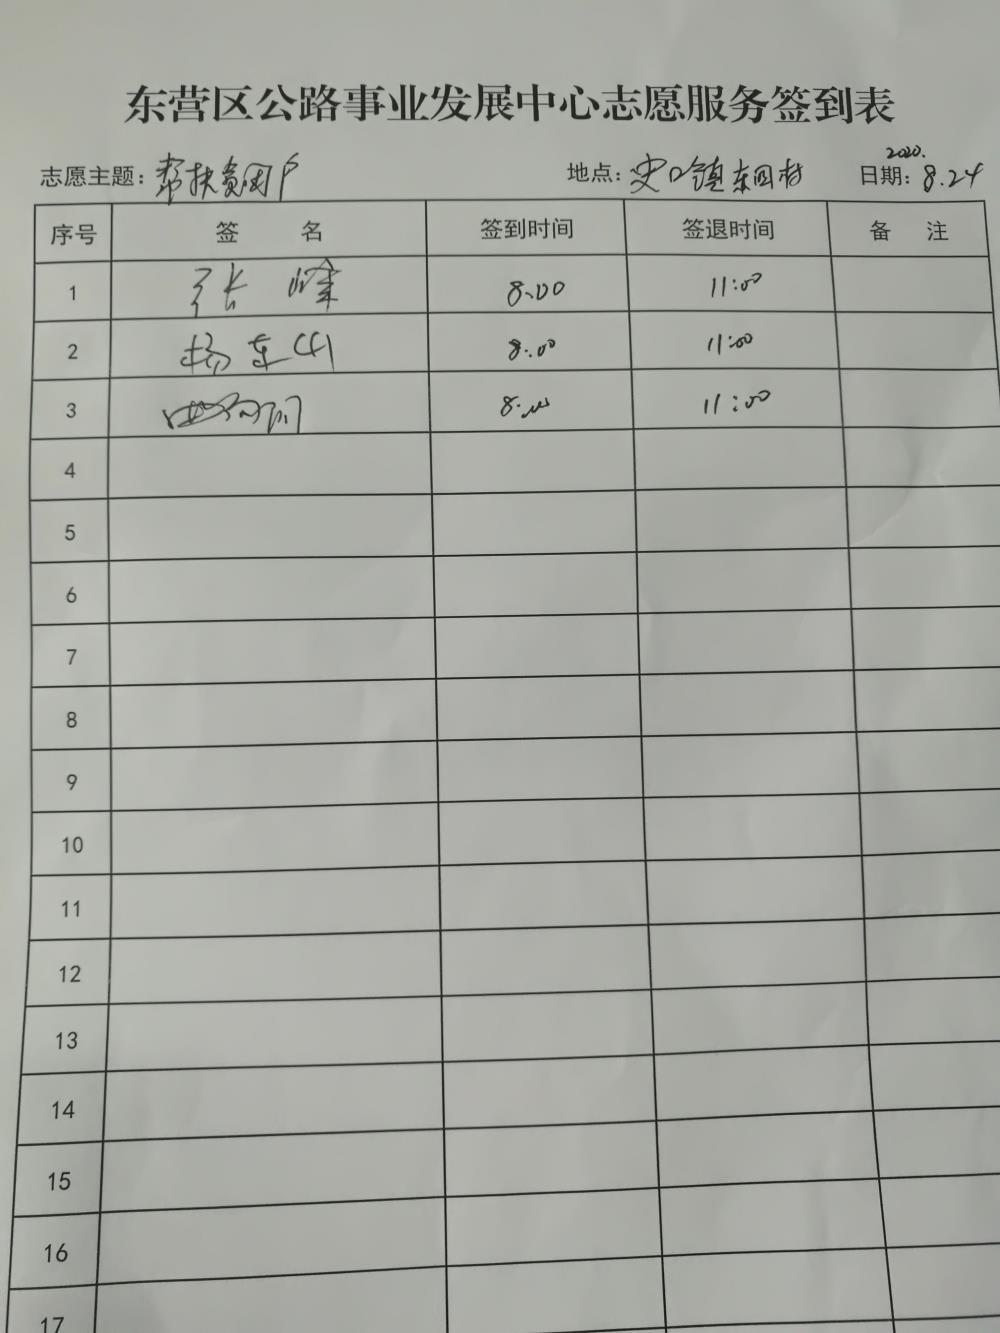 东营区公路事业发展中心志愿服务签到表
志愿主题：帮扶贫困户 地点：史口镇东田村 日期：2020. 8.24
序号 签 名 签到时间 签退时间 备 注
1 张峰 8:00 11:00
2 杨东 8:00 11:00
3 8:00 11:00
4
5
6
7
8
9
10
11
12
13
14
15
16
17